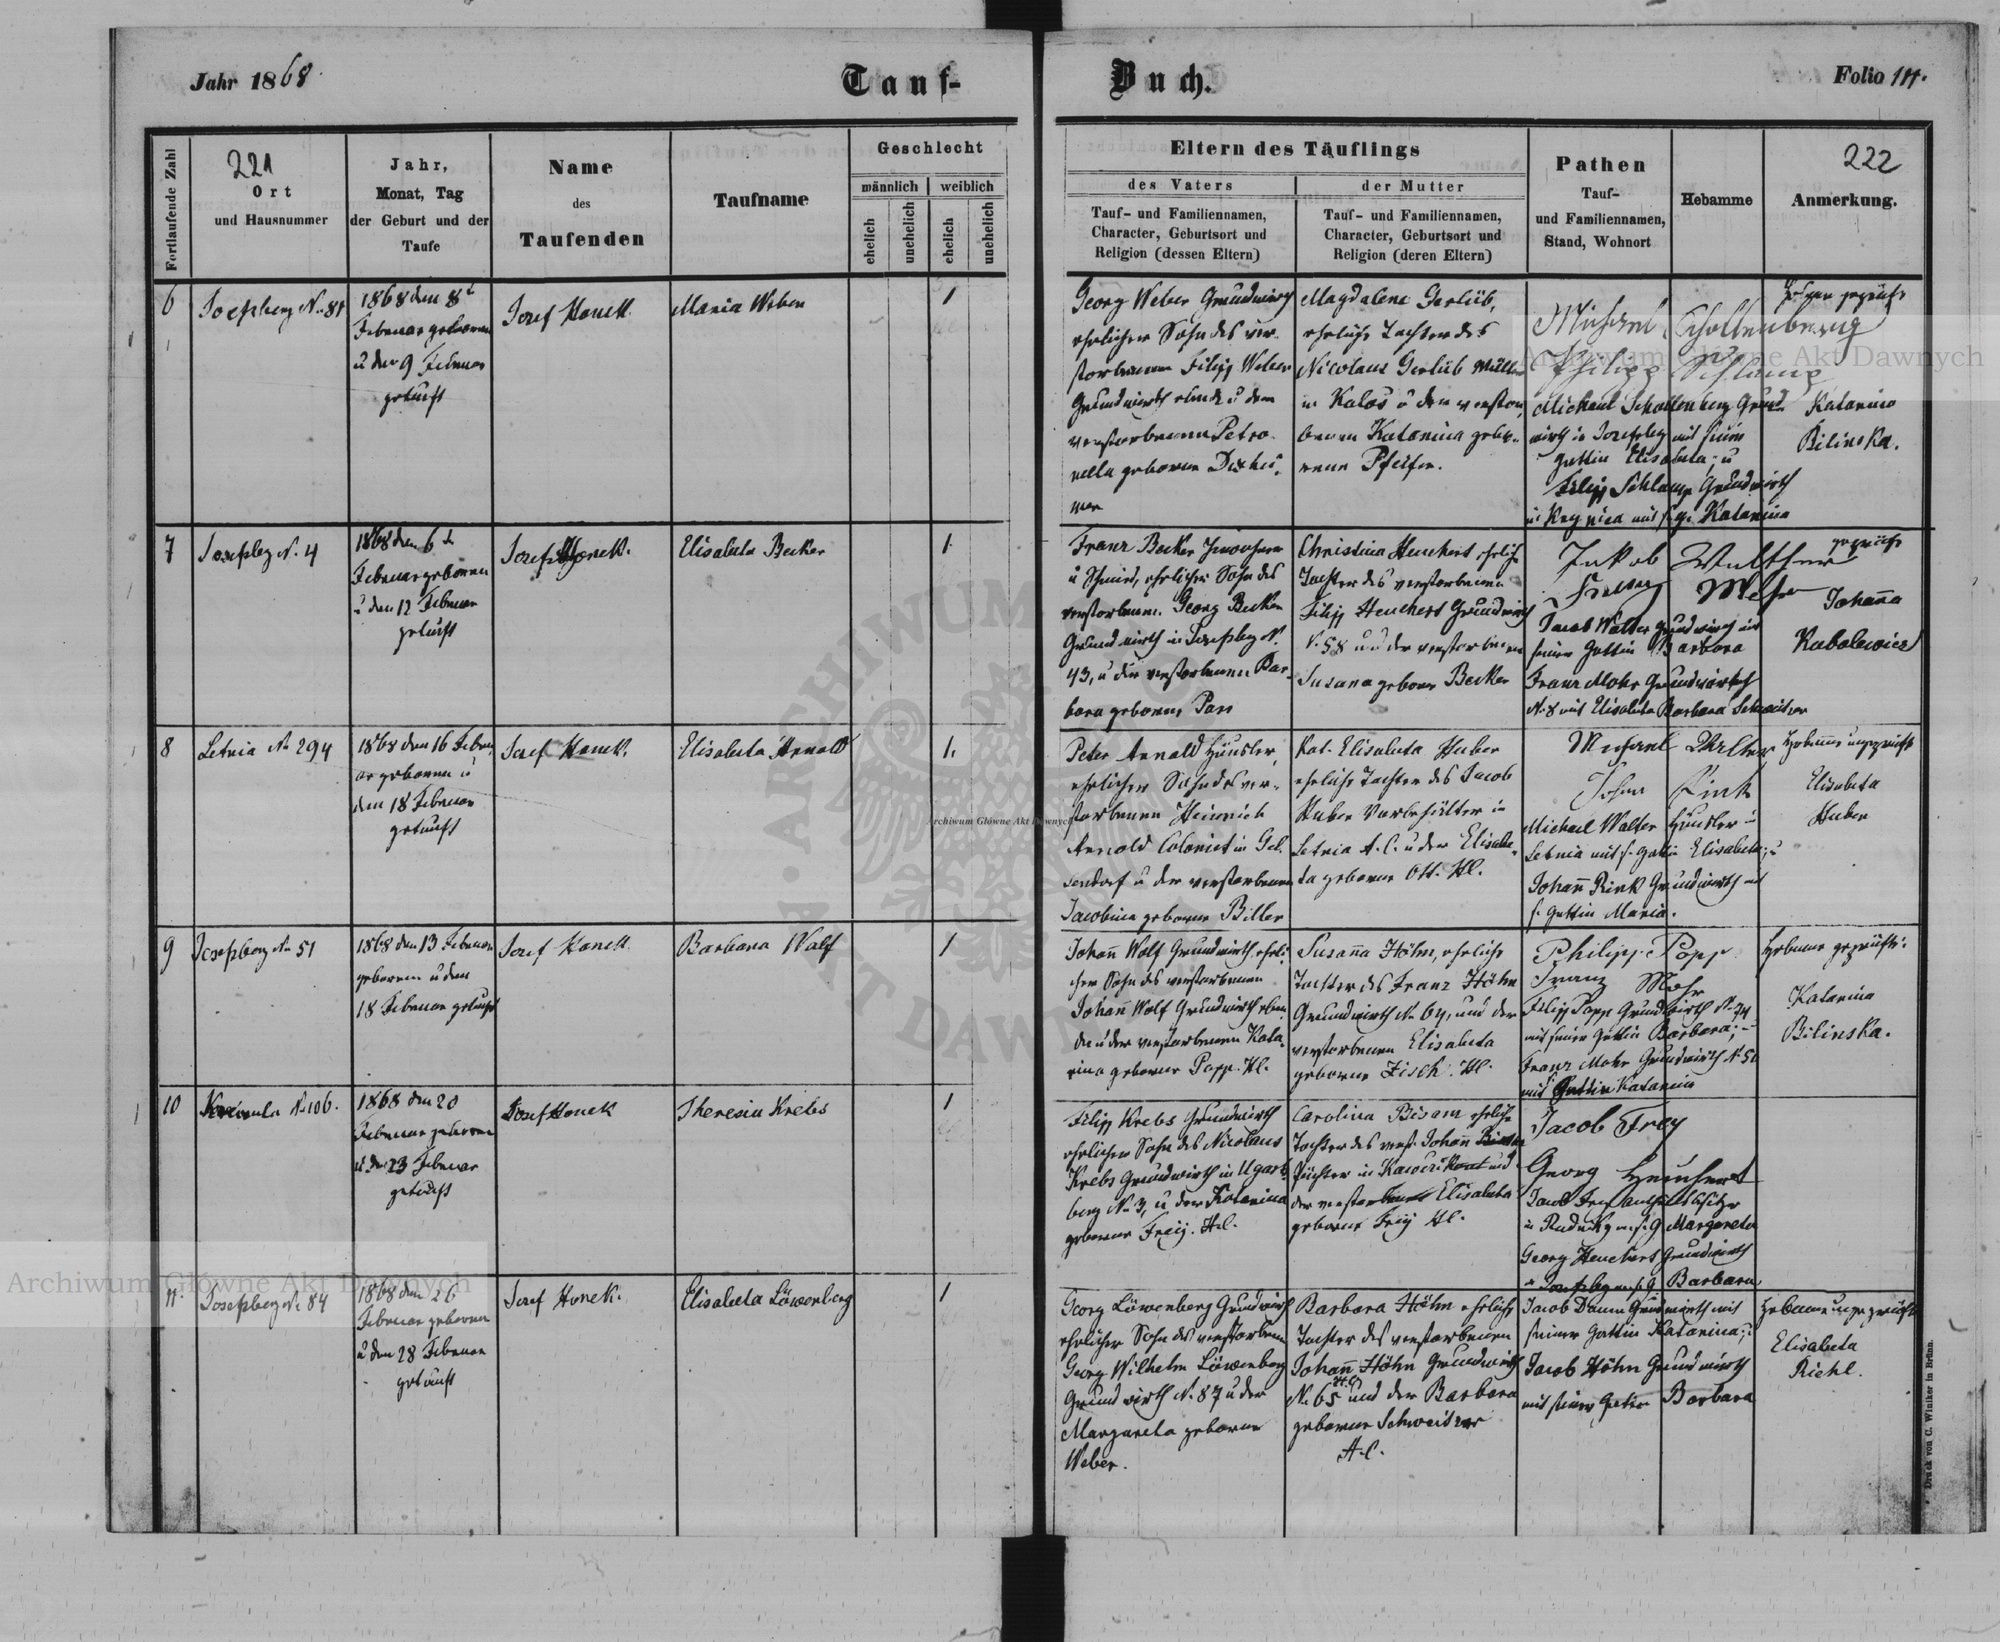 Jahr 1868.
Tauf-
Buch.
Folio 114.
221
222
Fortlaufende Zahl
Ort
und Hausnummer
Jahr,
Monat, Tag
der Geburt und der
Taufe
Name
des
Taufenden
Taufname
Geschlecht
männlich
weiblich
ehelich
unehelich
ehelich
unehelich
Eltern des Täuflings
des Vaters
Tauf- und Familiennamen,
Character, Geburtsort und
Religion (dessen Eltern)
der Mutter
Tauf- und Familiennamen,
Character, Geburtsort und
Religion (deren Eltern)
Pathen
Tauf-
und Familiennamen,
Stand, Wohnort
Hebamme
Anmerkung.
6
Josefberg N. 81
1868 den 8
Februar geboren
u den 9 Februar
getauft
Josef Honek
Maria Weber
1
Georg Weber Grundwirth
ehelicher Sohn des ver-
storbenen Filipp Weber
Grundwirth u der
verstorbenen Petro-
nella geborne
Magdalena Gerlüb,
eheliche Tochter des
Nicolaus Gerlüb Müller
in Kalos u der verstor
benen Katarina gebo-
rene Pfeifer.
Michael Schollenberg
Philipp Schlamp
Michael Schollenberg Grund
wirth in Josefsbg mit seiner
Gattin Elisabeta; u
Filipp Schlamp Grundwirth
in Krynica mit s. g. Katarina
geprüft
Katarina
Bilinska.
7
Josefbg N. 4
1868 den 6t
Februar geboren
u den 12 Februar
getauft
Josef Honek.
Elisabeta Becker
1
Franz Becker Inwohner
u Schmied, ehelicher Sohn des
verstorbenen Georg Becker
Grundwirth in Josefsbg N.
43, u der verstorbenen Bar-
bara geborene Pass
Christina Heuchert eheliche
Tochter des verstorbenen
Filipp Heuchert Grundwirth
N. 58 und der verstorbenen
Susana geborne Becker
Jakob Walther
Franz Mohr
Jacob Walter Grundwirth mit
seiner Gattin Barbara
Franz Mohr Grundwirth
N. 8 mit Elisabeta Barbara Schweitzer
geprüft
Johanna
Kubalewicz
8
Letnia N. 294
1868 den 16 Febru
ar geboren u
den 18 Februar
getauft
Josef Honek.
Elisabeta Arnold
1.
Peter Arnold Häusler,
ehelicher Sohn des ver-
storbenen Heinrich
Arnold Colonist in Gel-
sendorf u der verstorbenen
Jacobina geborne Biller
Kat. Elisabeta Huber
eheliche Tochter des Jacob
Huber Vorbehälter in
Letnia A. C. u der Elisabe-
ta geborne Ott. Hl.
Michael Walter
Johan Rink
Michael Walter Häusler in
Letnia mit s. Gattin Elisabeta; u
Johann Rink Grundwirth mit
s. Gattin Maria.
Hebamme ungeprüft
Elisabeta
Huber
9
Josefberg N. 51
1868 den 13 Februar
geboren u den
18 Februar getauft
Josef Honek
Barbara Wolf
1
Johann Wolf Grundwirth eheli-
cher Sohn des verstorbenen
Johann Wolf Grundwirth eben
da u der verstorbenen Kata-
rina geborne Popp. Hl.
Susanna Höhn, eheliche
Tochter des Franz Höhn
Grundwirth N. 64, und der
verstorbenen Elisabeta
geborne Fisch. Hl.
Philipp Popp
Franz Mohr
Filipp Popp Grundwirth N. 74
mit seiner Gattin Barbara; -
Franz Mohr Grundwirth N. 50
mit Gattin Katarina
Hebamme geprüft:
Katarina
Bilinska.
10
N. 106.
1868 den 20
Februar geboren
u den 23 Februar
getauft
Josef Honek
Theresia Krebs
1
Filipp Krebs Grundwirth
ehelicher Sohn des Nicolaus
Krebs Grundwirth in Ugarts-
berg N. 3, u der Katarina
geborene Freÿ. Hl.
Carolina Bisam eheliche
Tochter des verst. Johann Bisam
Pächter in und
der verstorbenen Elisabeta
geborne Freÿ Hl.
Jacob Frey
Georg Heuchert
Jacob Frey
in m. s. G Margareta
Georg Heuchert Grundwirth
in Josefsbg m. s. G Barbara
11.
Josefsberg N. 84
1868 den 26
Februar geboren
u den 28 Februar
getauft
Josef Honek.
Elisabeta Löwenberg
1
Georg Löwenberg Grundwirth
ehelicher Sohn des verstorbenen
Georg Wilhelm Löwenberg
Grundwirth N. 87 u der
Margareta geborne
Weber.
Barbara Höhn eheliche
Tochter des verstorbenen
Johann Höhn Grundwirth
N. 65 und der Barbara
geborne Schweitzer
A. C.
Jacob Daum Grundwirth mit
seiner Gattin Katarina; u
Jacob Höhn Grundwirth
mit seiner Gattin Barbara
Hebamme ungeprüft
Elisabeta
Riehl.
Druck von C. Winiker in Brünn.
Archiwum Główne Akt Dawnych
Archiwum Główne Akt Dawnych
Archiwum Główne Akt Dawnych